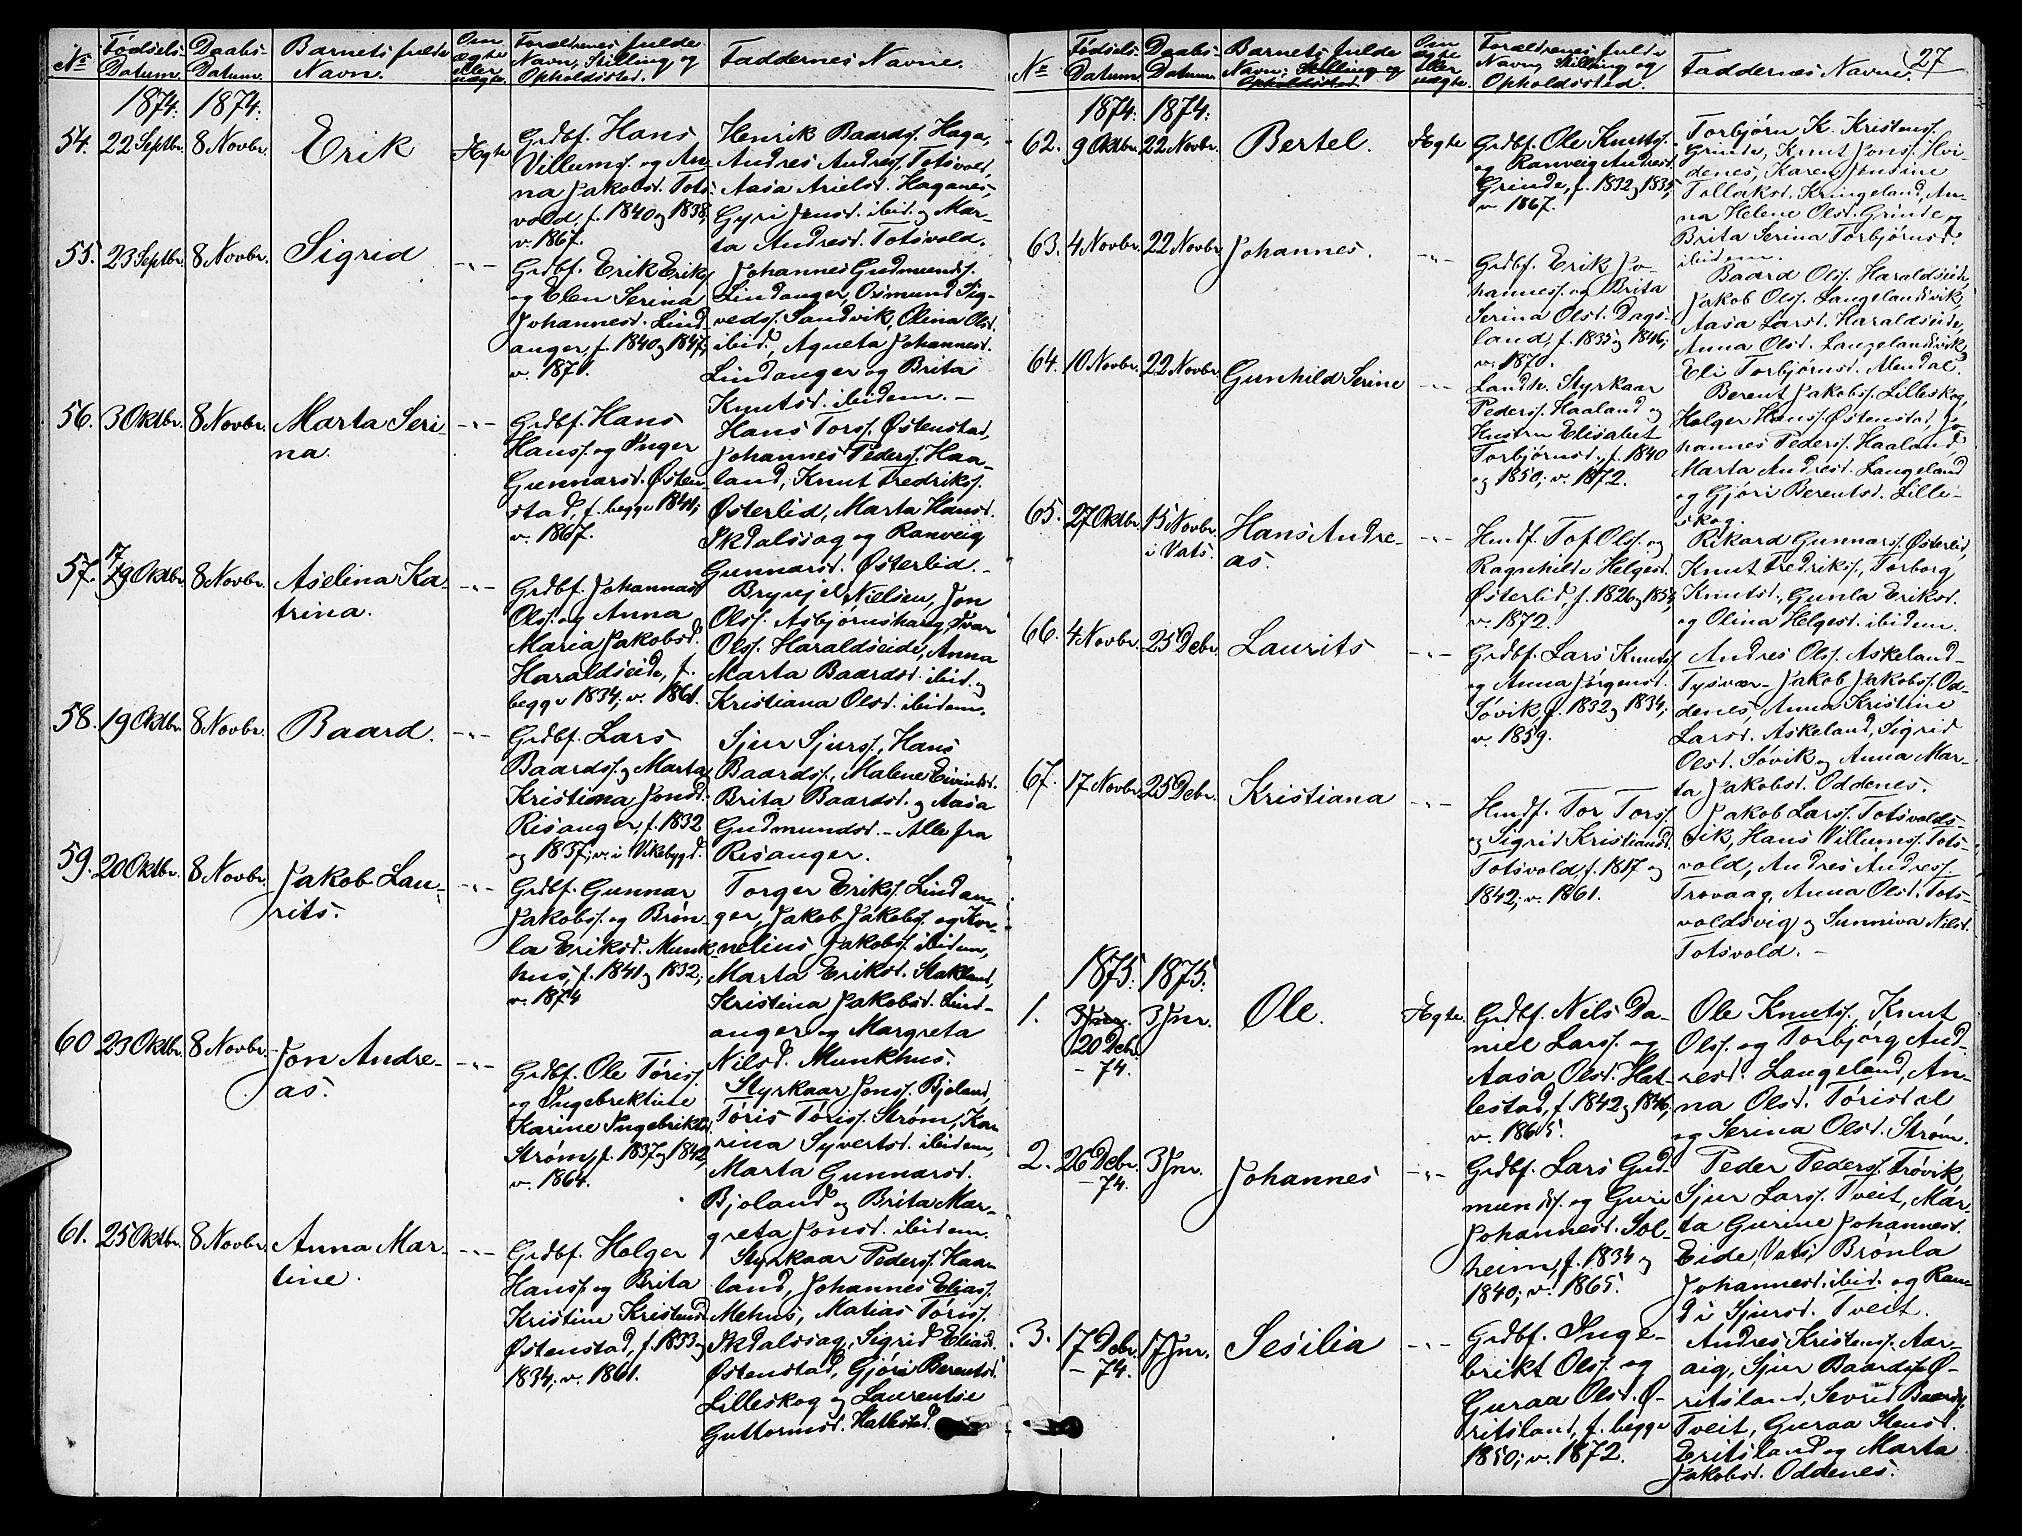 No Fødsels- Datum. Daabs- Datum. Barnets fulde Navn. Om ægte eller uægte. Forældrenes fulde Navn, Stilling og Opholdssted. Faddernes Navne.
1874. 1874.
54. 22 Septbr. 8 Novbr. Erik Ægte
Grdbf. Hans
Villumss. og An-
na Jakobsd. Tots-
vold, f. 1840 og 1838,
v. 1867.
Henrik Baardss. Haga,
Andres Andress. Totsvold,
Aasa Arielsd. Haganes,
Gyri Jensd. ibid. og Mar-
ta Andresd. Totsvold.
55. 23 Septbr. 8 Novbr. Sigrid -"-
Grdbf. Erik Eriks.
og Elen Serina
Johannesd. Lind-
anger, f. 1840 og 1847,
v. 1871.
Johannes Gudmunds.
Lindanger, Osmund Sig-
vedss. Sandvik, Olina Olsd.
ibid., Agneta Johannesd.
Lindanger og Brita
Knutsd. ibidem. –
56. 3 Oktbr. 8 Novbr. Marta Seri-
na.
-"-
Grdbf. Hans
Hanss. og Inger
Gunnarsd. Østen-
stad, f. begge 1841;
v. 1867.
Hans Torss. Østenstad,
Johannes Pederss. Haa-
land, Knut Fredrikss.
Østerlid, Marta Hansd.
Skdalssag og Ranveig
Gunnarsd. Østerlid. –
57. 17 Oktbr. 8 Novbr. Aselina Ka-
trina.
-"-
Grdbf. Johannes
Olss. og Anna
Maria Jakobsd.
Haraldseide, f.
begge 1834; v. 1861.
Brynjel Nielsen, Jon
Olss. Asbjørnshaug, Ivar
Olss. Haraldseide, Anna
Marta Baardsd. ibid. og
Kristiana Olsd. ibidem.
58. 19 Oktbr. 8 Novbr. Baard. -"-
Grdbf. Lars
Baardss. og Marta
Kristiana Jonsd.
Risanger, f. 1832
og 1837; v. i Vikebygd.
Sjur Sjurss., Hans
Baardss., Malene Eivindsd.
Brita Baardsd. og Aasa
Gudmundsd. – Alle fra
Risanger.
59. 20 Oktbr. 8 Novbr. Jakob Lau-
rits.
-"-
Grdbf. Gunnar
Jakobss. og Brøn-
la Eriksd. Munk-
hus, f. 1841 og 1832;
v. 1874
Torger Erikss. Lindan-
ger, Jakob Jakobss. og Kor-
nelius Jakobss. ibidem,
Marta Eriksd. Stakland,
Kristina Jakobsd. Lind-
anger og Margreta
Nilsd. Munkhus.
60 23 Oktbr. 8 Novbr. Jon Andre-
as.
-"-
Grdbf. Ole Tøriss.
og Ingebrektine
Karine Ingebriktsd.
Strøm, f. 1837 og 1842,
v. 1864.
Styrkaar Jonss. Bjoland,
Tøris Tøriss. Strøm, Ka-
rina Syvertsd. ibidem,
Marta Gunnarsd.
Bjoland og Brita Mar-
greta Jonsd. ibidem.
61. 25 Oktbr. 8 Novbr. Anna Mar-
tine.
-"-
Grdbf. Holger
Hanss. og Brita
Kristine Kristensd.
Østenstad, f. 1833 og
1834; v. 1861.
Styrkaar Pederss. Haa-
land, Johannes Eliass.
Mehus, Matias Tøriss.
Skdalssag, Sigrid Eliasd.
Østenstad, Gjøri Berentsd.
Lilleskog og Laurentse
Guttormsd. Hatlestad.
27
No Fødsels- Datum. Daabs- Datum. Barnets fulde Navn, Stilling og Opholdssted Om ægte eller uægte. Forældrenes fulde Navn, Stilling og Opholdssted. Faddernes Navne.
1874. 1874.
62. 9 Oktbr. 22 Novbr. Bertel. Ægte
Grdbf. Ole Knutss.
og Ranveig Andresd.
Grinde, f. 1832 og 1835,
v. 1867.
Torbjørn K. Kristenss.
Grinde, Knut Jonss. Hvi-
denes, Karen Jensine
Tollaksd. Kringeland, An-
na Helene Olsd. Grinde og
Brita Serina Torbjørnsd.
ibidem.
63. 4 Novbr. 22 Novbr. Johannes. -"-
Grdbf. Erik Jo-
hanness. og Brita
Serina Olsd. Dags-
land, f. 1835 og 1846;
v. 1870.
Baard Olss. Haraldseide,
Jakob Olss. Langelandsvik,
Aasa Larsd. Haraldseide,
Anna Olsd. Langelandsvik,
Eli Torbjørnsd. Alendal.
64. 10 Novbr. 22 Novbr. Gunhild Serine -"-
Landh. Styrkaar
Pederss. Haaland og
Hustru Elisabet
Torbjørnsd., f. 1840
og 1850; v. 1872.
Berent Jakobss. Lilleskog,
Holger Hanss. Østenstad, Jo-
hannes Pederss. Haaland
Marta Andresd. Langeland
og Gjøri Berentsd. Lille-
skog.
65. 27 Oktbr. 15 Novbr.
i Vats. Hans Andre-
as.
-"-
Hmdf. Tof Olss. og
Ragnhilde Helgesd.
Østerlid, f. 1826 og 1854;
v. 1872.
Rikard Gunnarss. Østerlid,
Knut Fredrikss., Torborg
Knutsd., Gunla Eriksd.
og Olina Helgesd. ibidem.
66. 4 Novbr. 25 Debr. Laurits -"-
Grdbf. Lars Knutss.
og Anna Jørgensd.
Søvik, f. 1832 og 1834;
v. 1859.
Andres Olss. Askeland –
Tysvær – Jakob Jakobss. Od-
denes, Anna Kristine
Larsd. Askeland, Sigrid
Olsd. Søvik og Anna Mar-
ta Jakobsd. Oddenes.
67. 17 Novbr. 25 Debr. Kristiana -"-
Hmdf. Tor Torss.
og Sigrid Kristiansd.
Totsvold, f. 1817 og
1842; v. 1861.
Jakob Larss. Totsvolds-
vik, Hans Villumss. Tots-
vold, Andres Andress.
Trovaag, Anna Olsd. Tots-
voldsvig og Sunniva Nilsd.
Totsvold. –
1875. 1875.
1. 3 Jnr.
20 Debr.
– 74. 3 Jnr. Ole. Ægte.
Grdbf. Nils Da-
niel Larss. og
Aasa Olsd. Hat-
lestad, f. 1842 og 1846;
v. 1865.
Ole Knutss., Knut
Olss. og Torbjørg And-
resd. Langeland, An-
na Olsd. Tørisdal
og Serina Olsd. Strøm.
2. 26 Debr.
– 74. 3 Jnr. Johannes -"-
Grdbf. Lars Gud-
mundss. og Guri
Johannesd. Sol-
heim, f. 1834 og
1840; v. 1865.
Peder Pederss. Trøvik,
Sjur Larss. Tveit, Mar-
ta Gurine Johannesd.
Eide, Vats, Brønla
Johannesd. ibid. og Ran-
di Sjursd. Tveit.
3. 17 Debr.
– 74. 17 Jnr. Sesilia -"-
Grdbf. Inge-
brikt Olss. og
Guraa Olsd. Ø-
ritsland, f. begge
1850; v. 1872.
Andres Kristenss. Aar-
aig, Sjur Baardss. Ø-
ritsland, Sevrid Baardsd.
Tveit, Guraa Stensd.
Eritsland og Marta
Jakobsd. Oddenes.